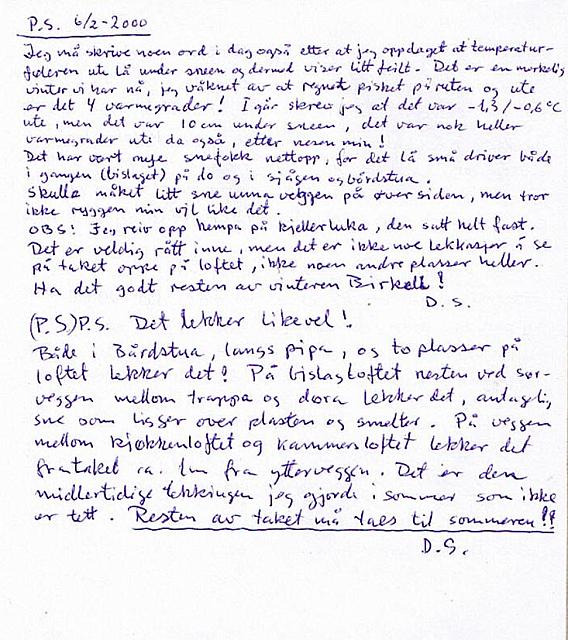 P.S. 6/2-2000
Jeg må skrive noen ord i dag også etter at jeg oppdaget at temperatur-
føleren ute lå under sneen og dermed viser litt feilt. Det er en merkelig
vinter vi har nå, jeg våknet av at regnet pisket på ruten og ute
er det 4 varmegrader! I går skrev jeg at det var -1,3/-0,6°C
ute, men det var 10 cm under sneen, det var nok heller
varmegrader ute da også, etter nesen min!
Det har vært mye snefokk nettopp, for det lå små driver både
i gangen (bislaget) på do og i sjågen og bårdstua.
Skulle måket litt sne unna veggen på øversiden, men tror
ikke ryggen min vil like det.
OBS! Jeg reiv opp hempa på kjellerluka, den satt helt fast.
Det er veldig rått inne, men det er ikke noe lekkasjer å se
på taket oppe på loftet, ikke noen andre plasser heller.
Ha det godt resten av vinteren Birkeli!
D.S.
(P.S)P.S. Det lekker likevel!
Både i Bårdstua, langs pipa, og to plasser på
loftet lekker det! På bislagloftet nesten ved sør-
veggen mellom trappa og døra lekker det, antagelig
sne som ligger over plasten og smelter. På veggen
mellom kjøkkenloftet og kammersloftet lekker det
fra taket ca. 1m fra ytterveggen. Det er den
midlertidige tekkingen jeg gjorde i sommer som ikke
er tett. Resten av taket må taes til sommeren!!
D.S.